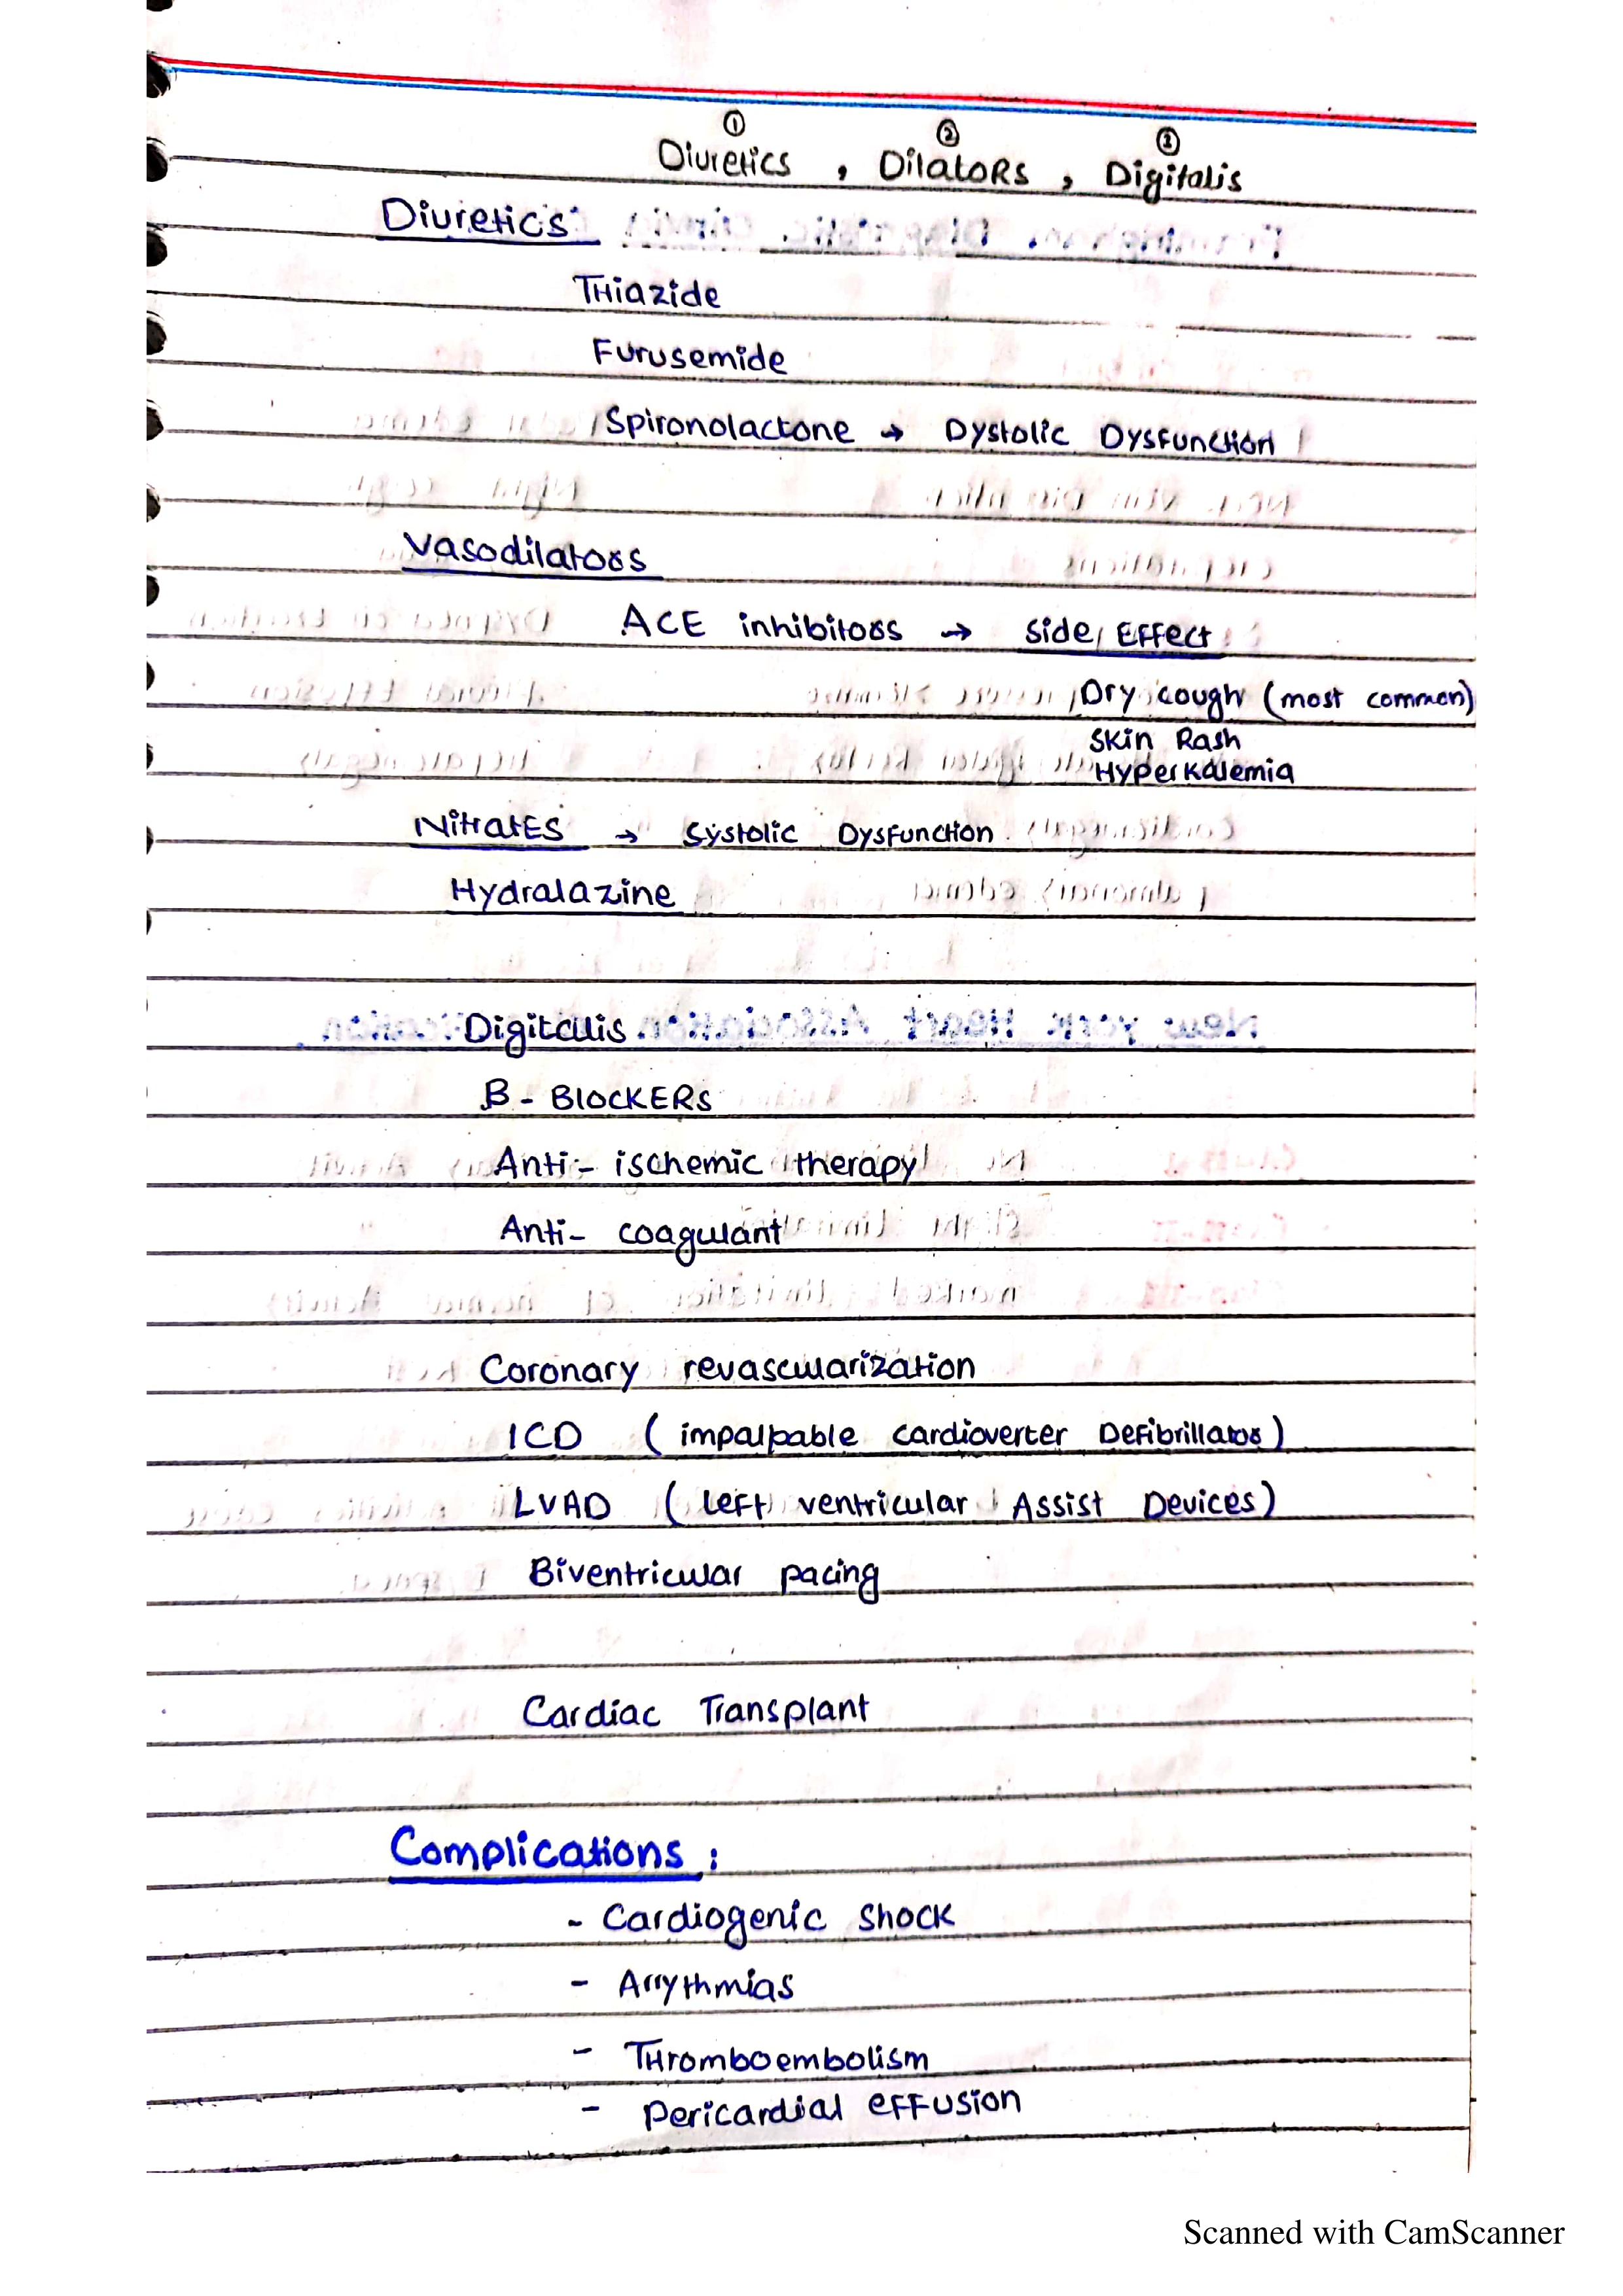 ① ② ③
Diuretics , Dilators , Digitalis
Diuretics:
Thiazide
Furusemide
Spironolactone → Dystolic Dysfunction
Vasodilators
ACE inhibitors → Side Effect
Dry cough (most common)
Skin Rash
Hyperkalemia
Nitrates → Systolic Dysfunction
Hydralazine
Digitalis
B - Blockers
Anti - ischemic therapy
Anti - coagulant
Coronary revascularization
ICD ( impalpable cardioverter Defibrillator )
LVAD ( Left ventricular Assist Devices )
Biventricular pacing
Cardiac Transplant
Complications :
- Cardiogenic Shock
- Arrythmias
- Thromboembolism
- Pericardial effusion
Scanned with CamScanner